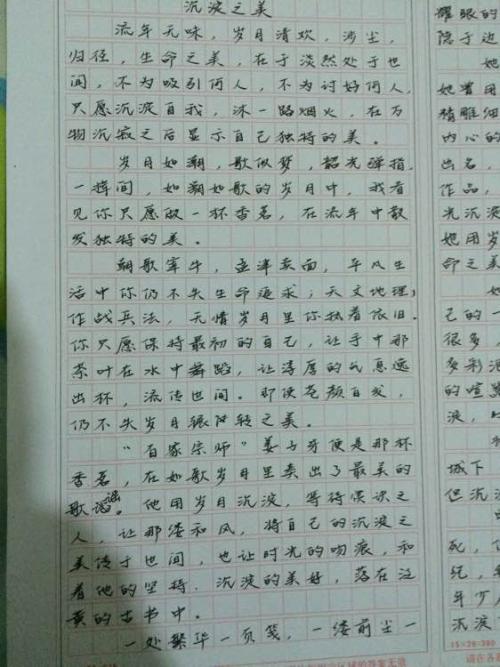 沉淀之美
流年无味，岁月清欢，涉尘，
归径，生命之美，在于淡然处于世
间，不为吸引何人，不为讨好何人，
只愿沉淀自我，沐一路烟火，在万
物沉寂之后显示自己独特的美。
岁月如翔，歌似梦，韶光弹指，
一挥间，如翔如歌的岁月中，我看
见你只愿做一杯香茗，在流年中散
发独特的美。
朝歌宰牛，孟津卖面，平凡生
活中你仍不失生命追求；天文地理，
作战兵法，无情岁月里你执着依旧。
你只愿保持最初的自己，让手中那
茶叶在水中舞蹈，让淳厚的气息逸
出杯，流传世间。即使苍颜白发，
仍不失岁月辗转之美。
“百家宗师”姜子牙便是那杯
香茗，在如歌岁月里卖出了最美的
歌谣。他用岁月沉淀，等待慢识之
人，让那缕和风，将自己的沉淀之
美传于世间，也让时光的吻痕，和
着他的坚持、沉淀的美好，落在泛
黄的古书中。
一处繁华一页笺，一缕前尘一
耀眼的
隐于边
她
她曾用
精雕细
内心的
出名，
作品，
光沉淀
她用岁
命之美
她
己的一
很多，
多彩
的喧
淀，
城下
但沉淀
死，
纪，
年少
沉淀
15×26=390